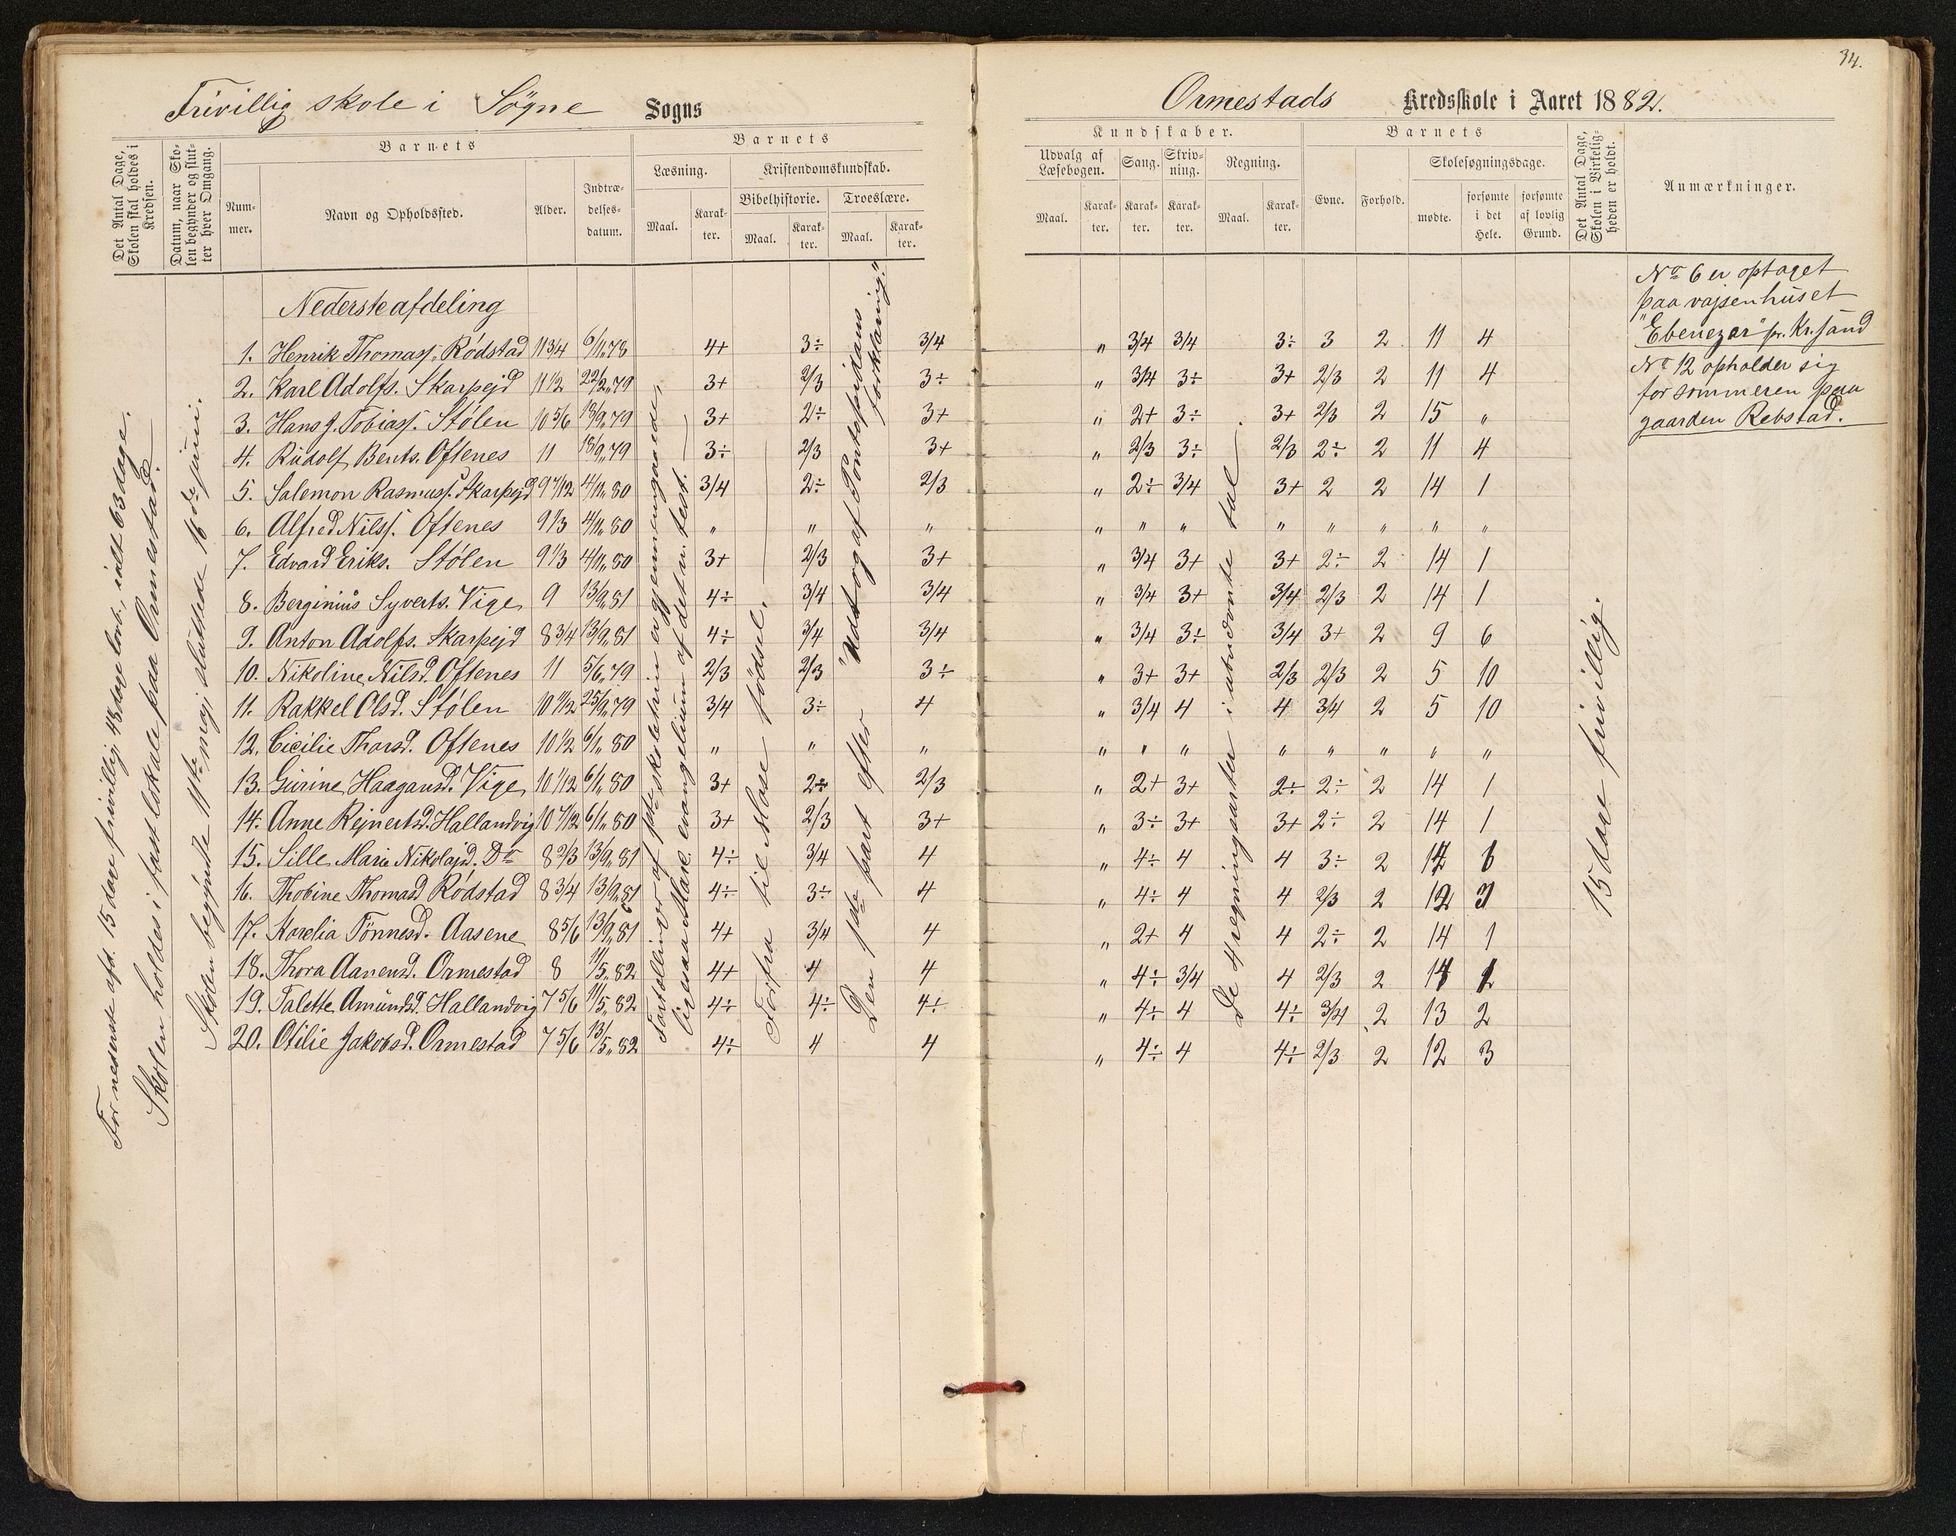 34.
Frivillig skole i Søgne Sogns
Det Antal Dage, Skolen skal holdes i Kredsen.
Datum, naar Skolen begynder og slutter hver Omgang.
Barnets
Nummer.
Navn og Opholdssted.
Alder.
Indtrædelsesdatum.
Barnets
Læsning.
Maal.
Karakter.
Kristendomskundskab.
Bibelhistorie.
Maal.
Karakter.
Troeslære.
Maal.
Karakter.
For nederste afd. 15 dage frivillig, 48 dage lovb., ialt 63 dage.
Skolen holdes i fast lokale paa Ormestad.
Skolen begyndte 11te maj, sluttede 16de juni.
Nederste afdeling
1. Henrik Thomass. Rødstad 11 3/4 6/11.78 4+ 3÷ 3/4
2. Karl Adolfs. Skarpejd 11 1/2 22/2.79 3+ 2/3 3÷
3. Hans J. Tobiass. Stølen 10 5/6 18/9.79 3+ 2÷ 3+
4. Rudolf Bents. Oftenes 11 18/9.79 3÷ 2/3 3+
5. Salemon Rasmuss. Skarpejd 9 7/12 4/11.80 3/4 2÷ 2/3
6. Alfred Nilss. Oftenes 9 1/3 4/11.80 " " "
7. Edvard Eriks. Stølen 9 1/3 4/11.80 3+ 2/3 3+
8. Berginius Syverts. Vige 9 13/9.81 4÷ 3/4 3/4
9. Anton Adolfs. Skarpejd 8 3/4 13/9.81 4÷ 3/4 3/4
10. Nikoline Nilsd. Oftenes 11 5/6.79 2/3 2/3 3÷
11. Rakkel Olsd. Stølen 10 11/12 25/9.79 3/4 3÷ 4
12. Cicilie Thorsd. Oftenes 10 1/2 6/1.80 " " "
13. Gurine Haagansd. Vige 10 1/12 6/1.80 3+ 2÷ 2/3
14. Anne Rejnertsd. Hallandvig 10 7/12 6/1.80 3+ 2/3 3+
15. Sille Marie Nikolajsd. Do 8 2/3 13/9.81 4÷ 3/4 4
16. Thobine Thomasd Rødstad 8 3/4 13/9.81 4÷ 3÷ 4
17. Korelia Tönnesd. Aasene 8 5/6 13/9.81 4+ 3/4 4
18. Thora Aanensd. Ormestad 8 11/5.82 4+ 4 4
19. Talette Amundsd. Hallandvig 7 5/6 11/5.82 4÷ 4÷ 4÷
20. Otilie Jakobsd. Ormestad 7 5/6 13/5.82 4÷ 4 4
Fortællinger af 1ste skoletrin er gjennemgaaede,
ligesaa Mark. evangelium af det n. test.
Forfra til Mose fødsel.
Den 1ste part efter "Udtog af Pontoppidans
forklaring."
Ormestads Kredsskole i Aaret 1882.
Kundskaber.
Udvalg af Læsebogen.
Maal.
Karakter.
Sang.
Karakter.
Skrivning.
Karakter.
Regning.
Maal.
Karakter.
Barnets
Evne.
Forhold.
Skolesøgningsdage.
mødte.
forsømte i det Hele.
forsømte af lovlig Grund.
Det Antal Dage, Skolen i Virkeligheden er holdt.
Anmærkninger.
" 3/4 3/4 3÷ 3 2 11 4
" 3/4 3÷ 3+ 2/3 2 11 4
" 2+ 3÷ 3+ 2/3 2 15 "
" 2/3 3÷ 2/3 2÷ 2 11 4
" 2÷ 3/4 3+ 2 2 14 1
" " " " " " " "
" 3/4 3+ 3+ 2÷ 2 14 1
" 3/4 3+ 3/4 2/3 2 14 1
" 3/4 3÷ 3/4 3+ 2 9 6
" 3+ 3+ 2/3 2/3 2 5 10
" 3/4 4 4 3/4 2 5 10
" " " " " " " "
" 2+ 3+ 2÷ 2÷ 2 14 1
" 3÷ 3+ 3+ 2÷ 2 14 1
" 4÷ 4 4 3÷ 2
" 4÷ 4 4 2/3 2 12 3
" 2+ 4 4 2÷ 2 14 1
" 4÷ 3/4 4 2/3 2
" 4÷ 4 4÷ 3/4 2 13 2
" 4÷ 4 4÷ 2/3 2 12 3
De 4 regningsarter i ubevnte tal.
15 dage frivillig.
No 6 er optaget
paa vajsenhuset
"Ebenezer" pr. Kr.sand
No 12 opholder sig
for sommeren paa
gaarden Rebstad.